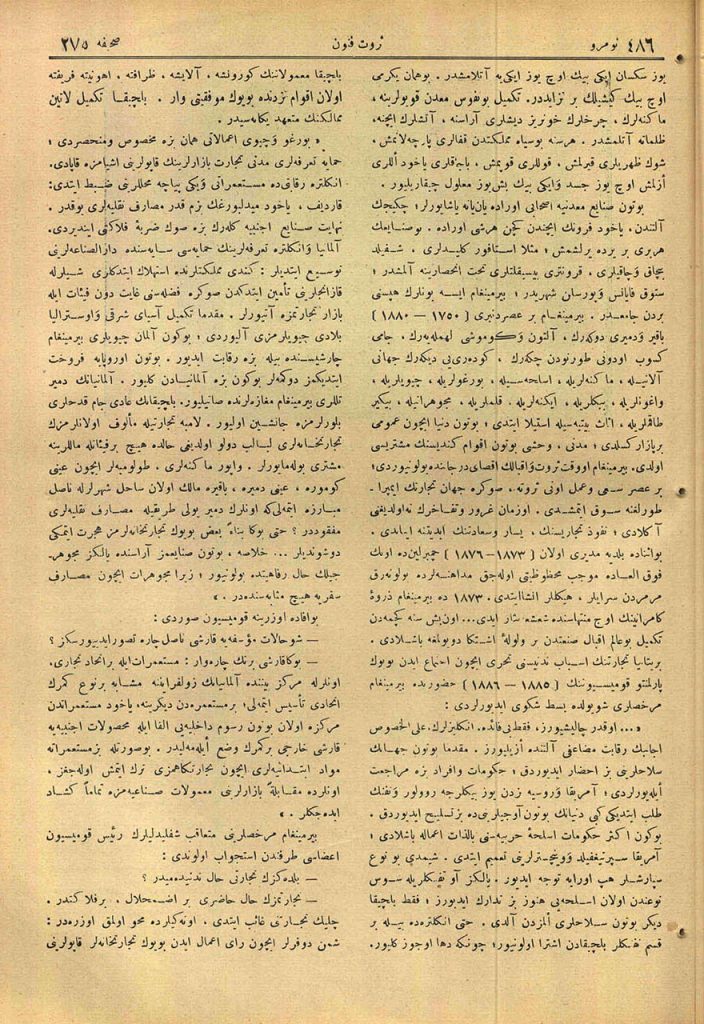 نومرو ٤٨٦
ثروت فنون
صحیفه ٢٧٥
یوز سکسان ایکی بیك اوچ یوز ایکی‌یه آتلامشدر. بوهمان یکرمی
اوچ بیك کیشیلك بر تزایددر. تکمیل بونفوس معدن قویولرینه،
ماکنه‌لرك، چرخلرك خونریز دیشلری آراسنه، آتشلرك ایچنه،
ظلماته آتلمشدر. هرسنه بوسیاه مملکتدن قفالری پارچه‌لانمش،
شوك ظهریلری قیرلمش، قوللری قوپمش، باجاقلری یاخود أللری
أزلمش اوچ یوز جسد وایکی بیك بش‌یوز معلول چیقاریلیور.
بوتون صنایع معدنیه اصحابی اوراده یان‌یانه یاشایورلر؛ چکیجك
آلتندن، یاخود فرونك ایچندن کچن هرشی اوراده. بوصنایعك
هربری بر یرده یرلشمش؛ مثلا استافور کلیدلری. شفیلد
بیچاقی وچاقیلری، قرونتری بیسیقلتلری تحت انحصارینه آلمشدر؛
ستوق فایانس وپورسلن شهریدر؛ بیرمینغام ایسه بونلرك هپسنی
بردن جامعدر. بیرمینغام بر عصردنبری (١٧٥٠ — ١٨٨٠)
باقیر ودمیری دوکه‌رك، آلتون وکوموشی لهمله‌یه‌رك، جامی
کسوب اودونی طورنودن چکه‌رك، کوده‌ری‌یی دیکه‌رك جهانی
آلاتیله، ماکنه‌لریله، اسلحه‌سیله، بورغولریله، چیویلریله،
واغونلریله، بیکلریله، ایکنه‌لریله، قلملریله، مجوهراتیله، بیکیر
طاقملریله، اثاث بیتیه‌سیله استیلا ایتدی؛ بوتون دنیا ایچون عمومی
برپازار کسلدی؛ مدنی، وحشی بوتون اقوام کندیسنك مشتریسی
اولدی. بیرمینغام اووقت ثروت‌واقبالك اقصای‌درجاتنده بولونیوردی؛
بر عصر سعی وعمل اونی ثروته، صوکره جهان تجارتك ایمپرا-
طورلغنه سوق ایتمشدی. اوزمان غرور وتفاخرك نه‌اولدیغنی
آکلادی؛ نفوذ تجاریسنك، یسار وسعادتنك ابدیتنه ایناندی.
بواثناده بلدیه مدیری اولان (١٨٧٣ – ١٨٧٦) چمبرلین‌ده اونك
فوق العاده موجب محظوظیتی اوله‌جق مداهنه‌لرده بولونه‌رق
مرمردن سرایلر، هیکللر انشاایتدی. ١٨٧٣ ده بیرمینغام ذروۀ
کامرانینك اوج منتهاسنده شعشعه‌نثار ایدی... اون‌بش سنه کچمه‌دن
تکمیل بوعالم اقبال صنعتدن بر ولولۀ اشتکا دویولمغه باشلادی.
بریتانیا تجارتنك اسباب تدنیسنی تحری ایچون اجتماع ایدن بویوك
پارلمنتو قومیسیوننك (١٨٨٥ — ١٨٨٦) حضورنده بیرمینغام
مرخصلری شویولده بسط شکوی ایدیورلردی:
«... اوقدر چالیشیورز، فقط بی‌فائده. انکلیزلرك، علی‌الخصوص
اجانبك رقابت مضاعفی آلتنده أزیلیورز. مقدما بوتون جهانك
سلاحلرینی بز احضار ایدیوردق؛ حکومات وافراد بزه مراجعت
أیله‌یورلردی؛ آمریقا وروسیه بزدن یوز بیکلرجه روولور وتفنك
طلب ایتدیکی کبی دنیانك بوتون آوجیلرینی‌ده بزتسلیح ایدیوردق.
بوکون اکثر حکومات اسلحۀ حربیه‌سنی بالذات اعماله باشلادی؛
آمریقا سپرینغفیلد ووینچسترلرینی تعمیم ایتدی. شیمدی بو نوع
سپارشلر هپ اورایه توجه ایدیور. یالکز آو تفنکلریله سوس
نوعندن اولان اسلحه‌یی هنوز بز تدارك ایدیورز؛ فقط بلچیقا
دیکر بوتون سلاحلری ألمزدن آلدی. حتی انکلتره‌ده بیله بر
قسم تفنکلر بلچیقادن اشترا اولونیور؛ چونکه دها اوجوز کلیور.
بلچیقا معمولاتنك کورونشه، آلایشه، ظرافته، اهونیته فریفته
اولان اقوام نزدنده بویوك موفقیتی وار. بلچیقا تکمیل لاتین
ممالکنك متعهد یکانه‌سیدر.
«بورغو وچیوی اعمالاتی همان بزه مخصوص ومنحصردی؛
حمایه تعرفه‌لری مدنی تجارت بازارلرینك قاپولرینی اشیامزه قاپادی.
انکلتره رقابتی‌ده مستعمراتی ویکی پیاچه محللرینی ضبط ایتدی:
قاردیف، یاخود میدلبورغك بزم قدر مصارف نقلیه‌لری یوقدر.
نهایت صنایع اجنبیه کله‌رك بزه صوك ضربۀ فلاکتی ایندیردی.
آلمانیا وانکلتره تعرفه‌لرینك حمایه‌سی سایه‌سنده دارالصناعه‌لرینی
توسیع ایتدیلر: کندی مملکتلرنده استهلاك ایتدکلری شیلرله
قازانجلرینی تأمین ایتدکدن صوکره فضله‌سنی غایت دون فیئات ایله
بازار تجارتمزه آتیورلر. مقدما تکمیل آسیای شرقی واوسترالیا
بلادی چیویلرمزی آلیوردی؛ بوکون آلمان چیویلری بیرمینغام
چارشیسنده بیله بزه رقابت ایدیور. بوتون اوروپایه فروخت
ایتدیکمز دوکمه‌لر بوکون بزه آلمانیادن کلیور. آلمانیانك دمیر
تللری بیرمینغام مغازه‌لرنده صاتیلیور. بلچیقانك عادی جام قدحلری
بلورلرمزه جانشین اولیور. لامبه تجارتیله مألوف اولانلرمزك
تجارتخانه‌لری لبالب دولو اولدیغی حالده هیچ برفیئاتله ماللرینه
مشتری بوله‌مایورلر. واپور ماکنه‌لری. طولومبه‌لر ایچون عینی
کوموره، عینی دمیره، باقیره مالك اولان ساحل شهرلرله ناصل
مبارزه ایتملی‌که اونلرك دمیر یولی طریقیله مصارف نقلیه‌لری
مفقوددر؟ حتی بوکا بناءً بعض بویوك تجارتخانه‌لرمز هجرت ایتمکی
دوشوندیلر... خلاصه، بوتون صنایعمز آراسنده یالکز مجوهر-
جیلك حال رفاهیتده بولونیور؛ زیرا مجوهرات ایچون مصارف
سفریه هیچ مثابه‌سنده‌در.»
بوافاده اوزرینه قومیسیون صوردی:
— شوحالات مؤسفه‌یه قارشی ناصل چاره تصورایدیبورسکز؟
— بوکاقارشی برتك چاره‌وار: مستعمرات‌ایله براتحاد تجاری.
اونلرله مرکز بیننده آلمانیانك زولفراینبه مشابه برنوع کمرك
اتحادی تأسیس ایتمه‌لی؛ برمستعمره‌دن دیکرینه، یاخود مستعمراتدن
مرکزه اولان بوتون رسوم داخلیه‌یی الغا ایله محصولات اجنبیه‌یه
قارشی خارجی برکمرك وضع أیله‌مه‌لیدر. بوصورتله بزمستعمراته
مواد ابتدائیه‌لری ایچون تجارتکاهمزی ترك ایتمش اوله‌جغز،
اونلرده مقابلةً بازارلرینی معمولات صناعیه‌مزه تماماً کشاد
ایده‌جکلر.»
بیرمینغام مرخصلرینی متعاقب شفیلدلیلرك رئیس قومیسیون
اعضاسی طرفندن استجواب اولوندی:
— بلده‌کزك تجارتی حال تدنیده‌میدر؟
— تجارتمزك حال حاضری بر اضمحلال، برفلاکتدر.
چلیك تجارتنی غائب ایتدی. اوته‌کیلرده محو اولمق اوزره‌در:
شمن دوفرلر ایچون رای اعمال ایدن بویوك تجارتخانه‌لر قاپولرینی